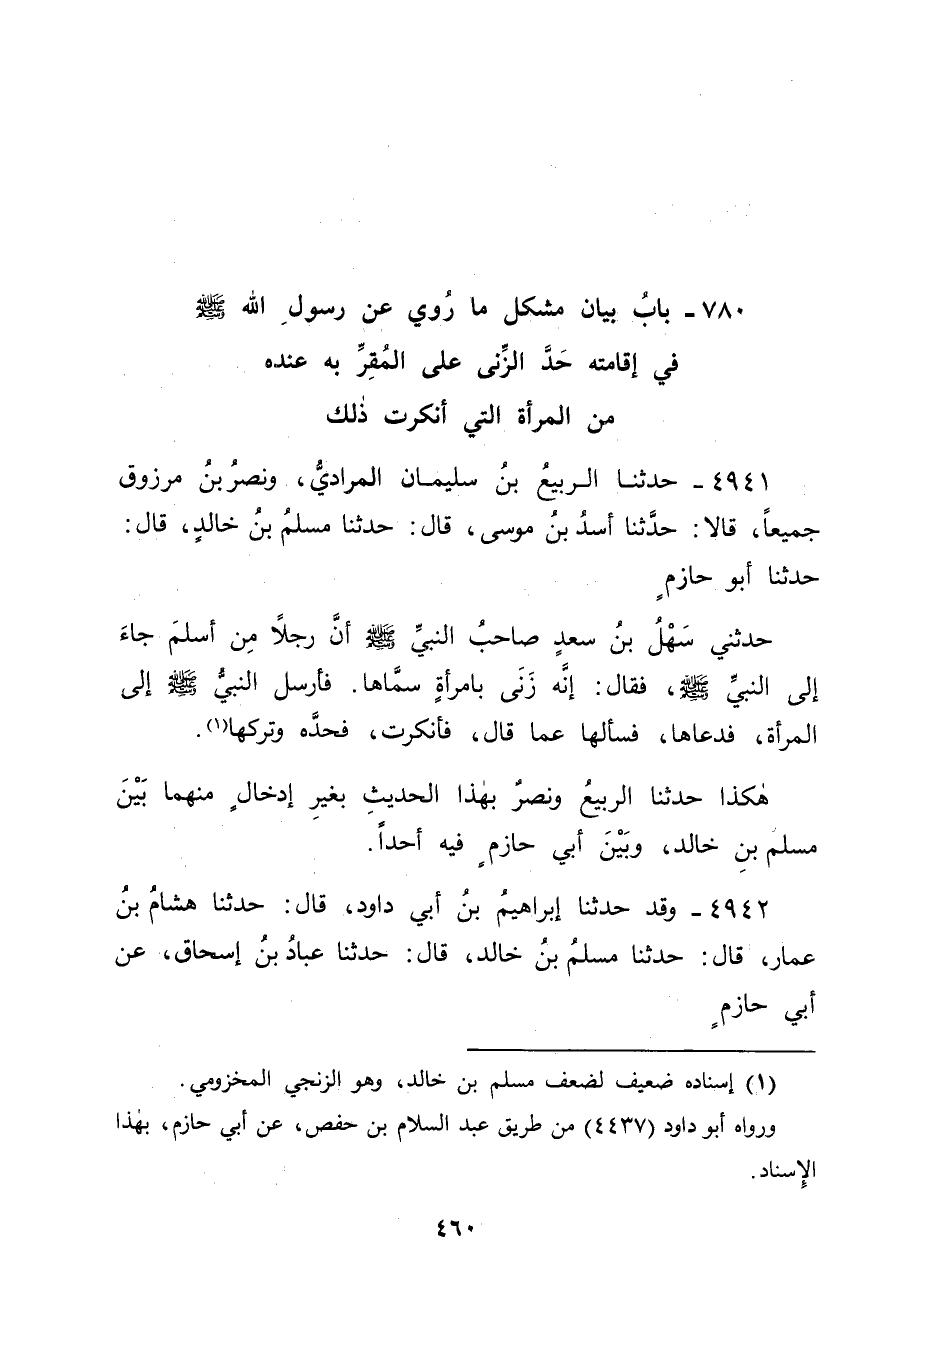 ٧٨٠ - بابُ بيان مشكل ما رُوي عن رسولِ الله ﷺ
في إقامته حَدَّ الزِّنى على المُقِرِّ به عنده
من المرأة التي أنكرت ذٰلك
٤٩٤١ - حدثنا الربيعُ بنُ سليمان المراديُّ، ونصرُ بنُ مرزوق
جميعاً، قالا: حدَّثنا أسدُ بنُ موسى، قال: حدثنا مسلمُ بنُ خالدٍ، قال:
حدثنا أبو حازمٍ
حدثني سَهْلُ بنُ سعدٍ صاحبُ النبيِّ ﷺ أنَّ رجلاً مِن أسلمَ جاءَ
إلى النبيِّ ﷺ، فقال: إنَّه زَنَى بامرأةٍ سمَّاها. فأرسل النبيُّ ﷺ إلى
المرأة، فدعاها، فسألها عما قال، فأنكرت، فحدَّه وتركها(١).
هٰكذا حدثنا الربيعُ ونصرٌ بهٰذا الحديثِ بغيرِ إدخالٍ منهما بَيْنَ
مسلمِ بنِ خالد، وبَيْنَ أبي حازمٍ فيه أحداً.
٤٩٤٢ - وقد حدثنا إبراهيمُ بنُ أبي داود، قال: حدثنا هشامُ بنُ
عمار، قال: حدثنا مسلمُ بنُ خالد، قال: حدثنا عبادُ بنُ إسحاق، عن
أبي حازمٍ
(١) إسناده ضعيف لضعف مسلم بن خالد، وهو الزنجي المخزومي.
ورواه أبو داود (٤٤٣٧) من طريق عبد السلام بن حفص، عن أبي حازم، بهٰذا
الإسناد.
٤٦٠